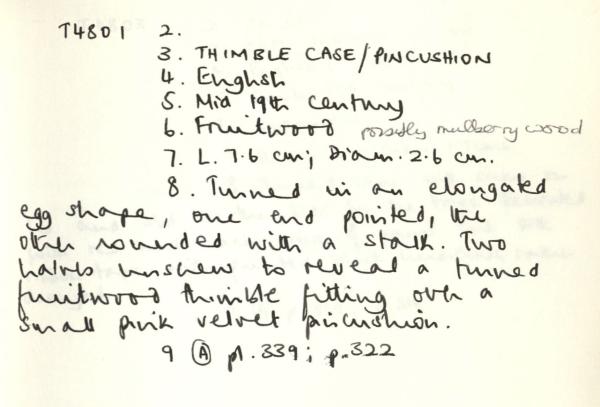 T4801 2.
3. THIMBLE CASE/PINCUSHION
4. English
5. Mid 19th Century
6. Fruitwood possibly mulberry wood
7. L. 7.6 cm; Diam. 2.6 cm.
8. Turned in an elongated
egg shape, one end pointed, the
other rounded with a stalk. Two
halves unscrew to reveal a turned
fruitwood thimble fitting over a
small pink velvet pincushion.
9 (A) pl. 339; p.322